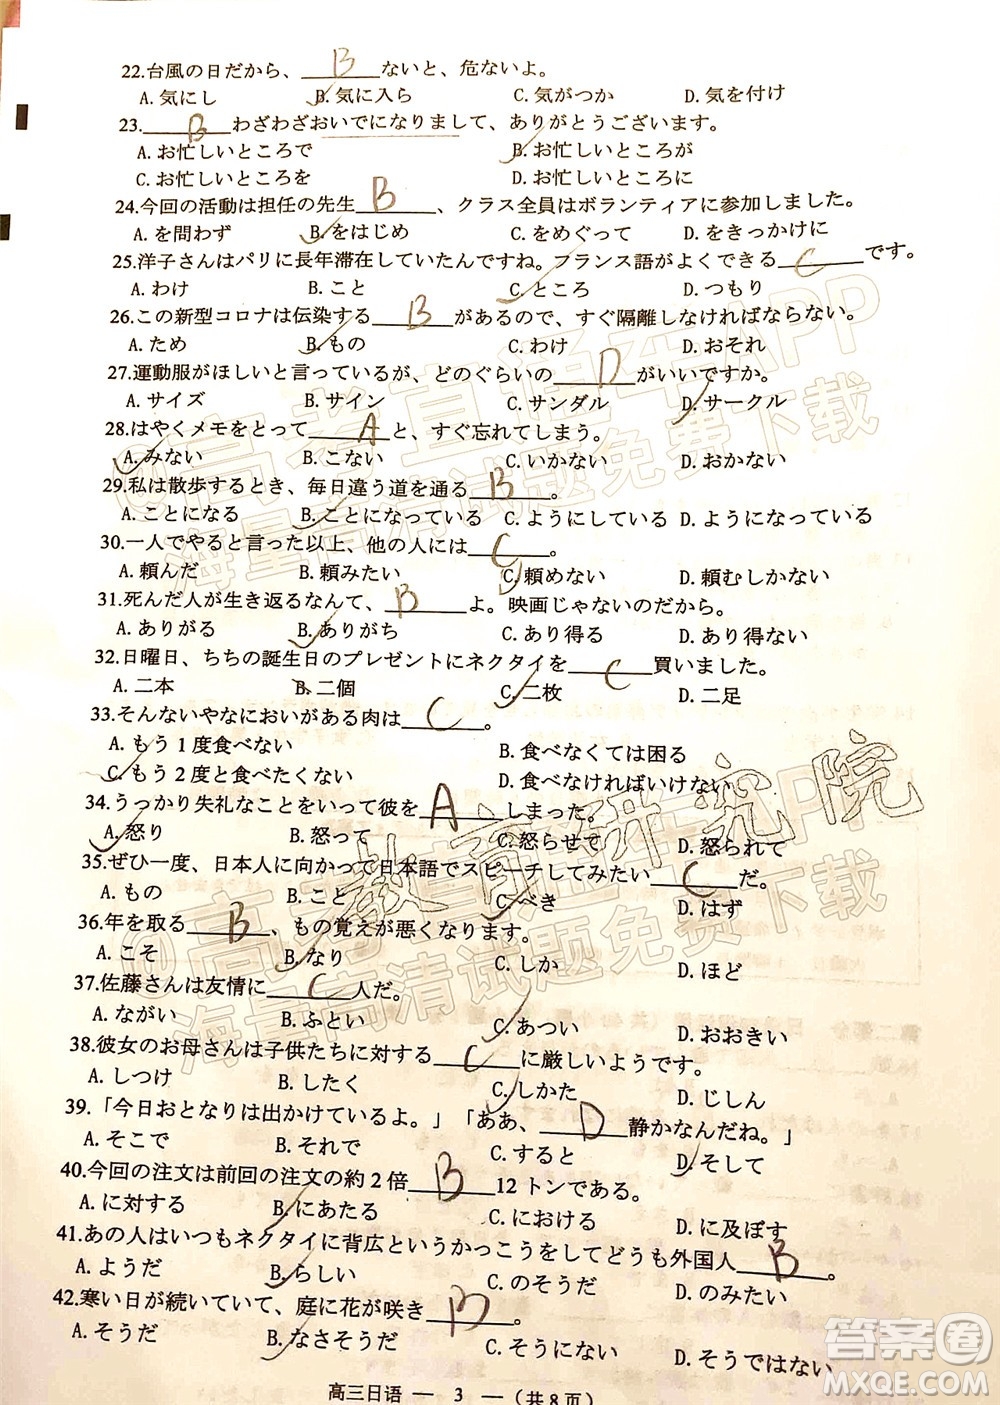 22.台風の日だから、 B ないと、危ないよ。
A. 気にし B. 気に入ら C. 気がつか D. 気を付け
23. B わざわざおいでになりまして、ありがとうございます。
A. お忙しいところで B. お忙しいところが
C. お忙しいところを D. お忙しいところに
24.今回の活動は担任の先生 B 、クラス全員はボランティアに参加しました。
A. を問わず B. をはじめ C. をめぐって D. をきっかけに
25.洋子さんはパリに長年滞在していたんですね。フランス語がよくできる C です。
A. わけ B. こと C. ところ D. つもり
26.この新型コロナは伝染する B があるので、すぐ隔離しなければならない。
A. ため B. もの C. わけ D. おそれ
27.運動服がほしいと言っているが、どのぐらいの D がいいですか。
A. サイズ B. サイン C. サンダル D. サークル
28.はやくメモをとって A と、すぐ忘れてしまう。
A. みない B. こない C. いかない D. おかない
29.私は散歩するとき、毎日違う道を通る B 。
A. ことになる B. ことになっている C. ようにしている D. ようになっている
30.一人でやると言った以上、他の人には C 。
A. 頼んだ B. 頼みたい C. 頼めない D. 頼むしかない
31.死んだ人が生き返るなんて、 B よ。映画じゃないのだから。
A. ありがる B. ありがち C. あり得る D. あり得ない
32.日曜日、ちちの誕生日のプレゼントにネクタイを C 買いました。
A. 二本 B. 二個 C. 二枚 D. 二足
33.そんないやなにおいがある肉は C 。
A. もう 1 度食べない B. 食べなくては困る
C. もう 2 度と食べたくない D. 食べなければいけない
34.うっかり失礼なことをいって彼を A しまった。
A. 怒り B. 怒って C. 怒らせて D. 怒られて
35.ぜひ一度、日本人に向かって日本語でスピーチしてみたい C だ。
A. もの B. こと C. べき D. はず
36.年を取る B 、もの覚えが悪くなります。
A. こそ B. なり C. しか D. ほど
37.佐藤さんは友情に C 人だ。
A. ながい B. ふとい C. あつい D. おおきい
38.彼女のお母さんは子供たちに対する C に厳しいようです。
A. しつけ B. したく C. しかた D. じしん
39.「今日おとなりは出かけているよ。」「ああ、 D 静かなんだね。」
A. そこで B. それで C. すると D. そして
40.今回の注文は前回の注文の約 2 倍 B 12 トンである。
A. に対する B. にあたる C. における D. に及ぼす
41.あの人はいつもネクタイに背広というかっこうをしてどうも外国人 B 。
A. ようだ B. らしい C. のそうだ D. のみたい
42.寒い日が続いていて、庭に花が咲き B 。
A. そうだ B. なさそうだ C. そうにない D. そうではない
高三日语 — 3 — (共 8 页)
@高考直通车APP
海量高清试题免费下载
教育研究院
@高考直通车APP
海量高清试题免费下载
答案圈
MXQE.COM